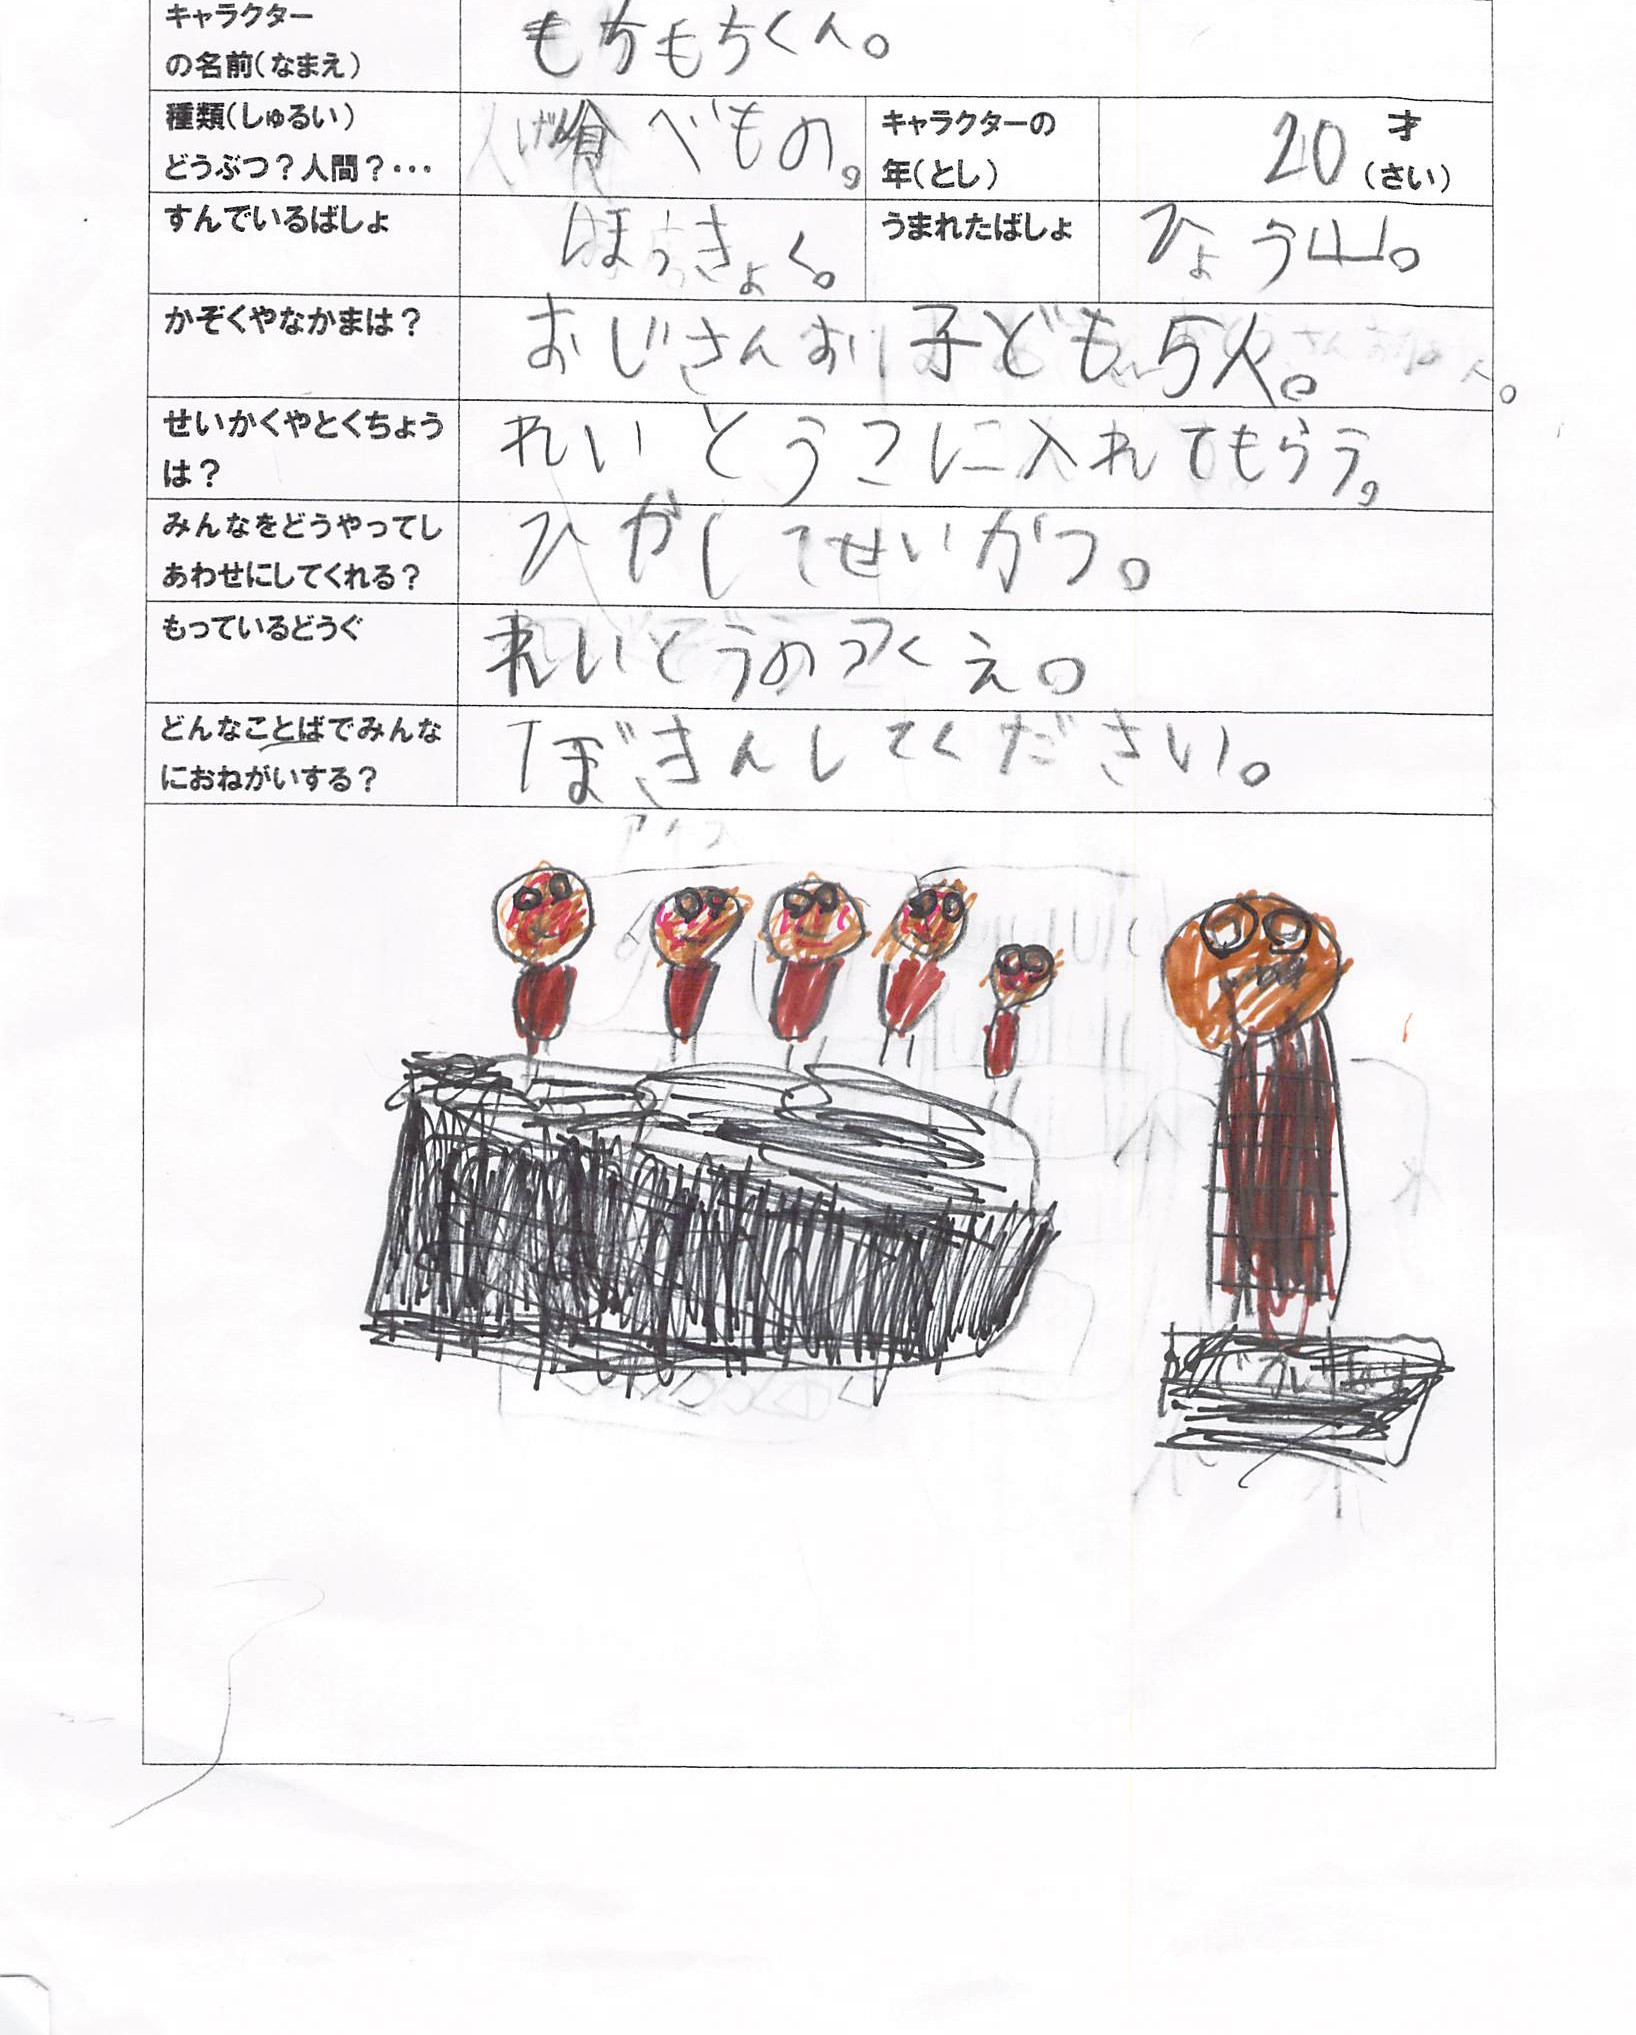 キャラクター
の名前(なまえ)
もちもちくん。
種類(しゅるい)
どうぶつ?人間?・・・
食べもの。
キャラクターの
年(とし)
20
才
(さい)
すんでいるばしょ
ほっきょく。
うまれたばしょ
ひょう山。
かぞくやなかまは?
おじさんお 子ども 5人。
せいかくやとくちょう
は?
れいとうこに入れてもらう。
みんなをどうやってし
あわせにしてくれる?
ひやしてせいかつ。
もっているどうぐ
れいとうのつくえ。
どんなことばでみんな
におねがいする?
「ぼきんしてください。
アイス